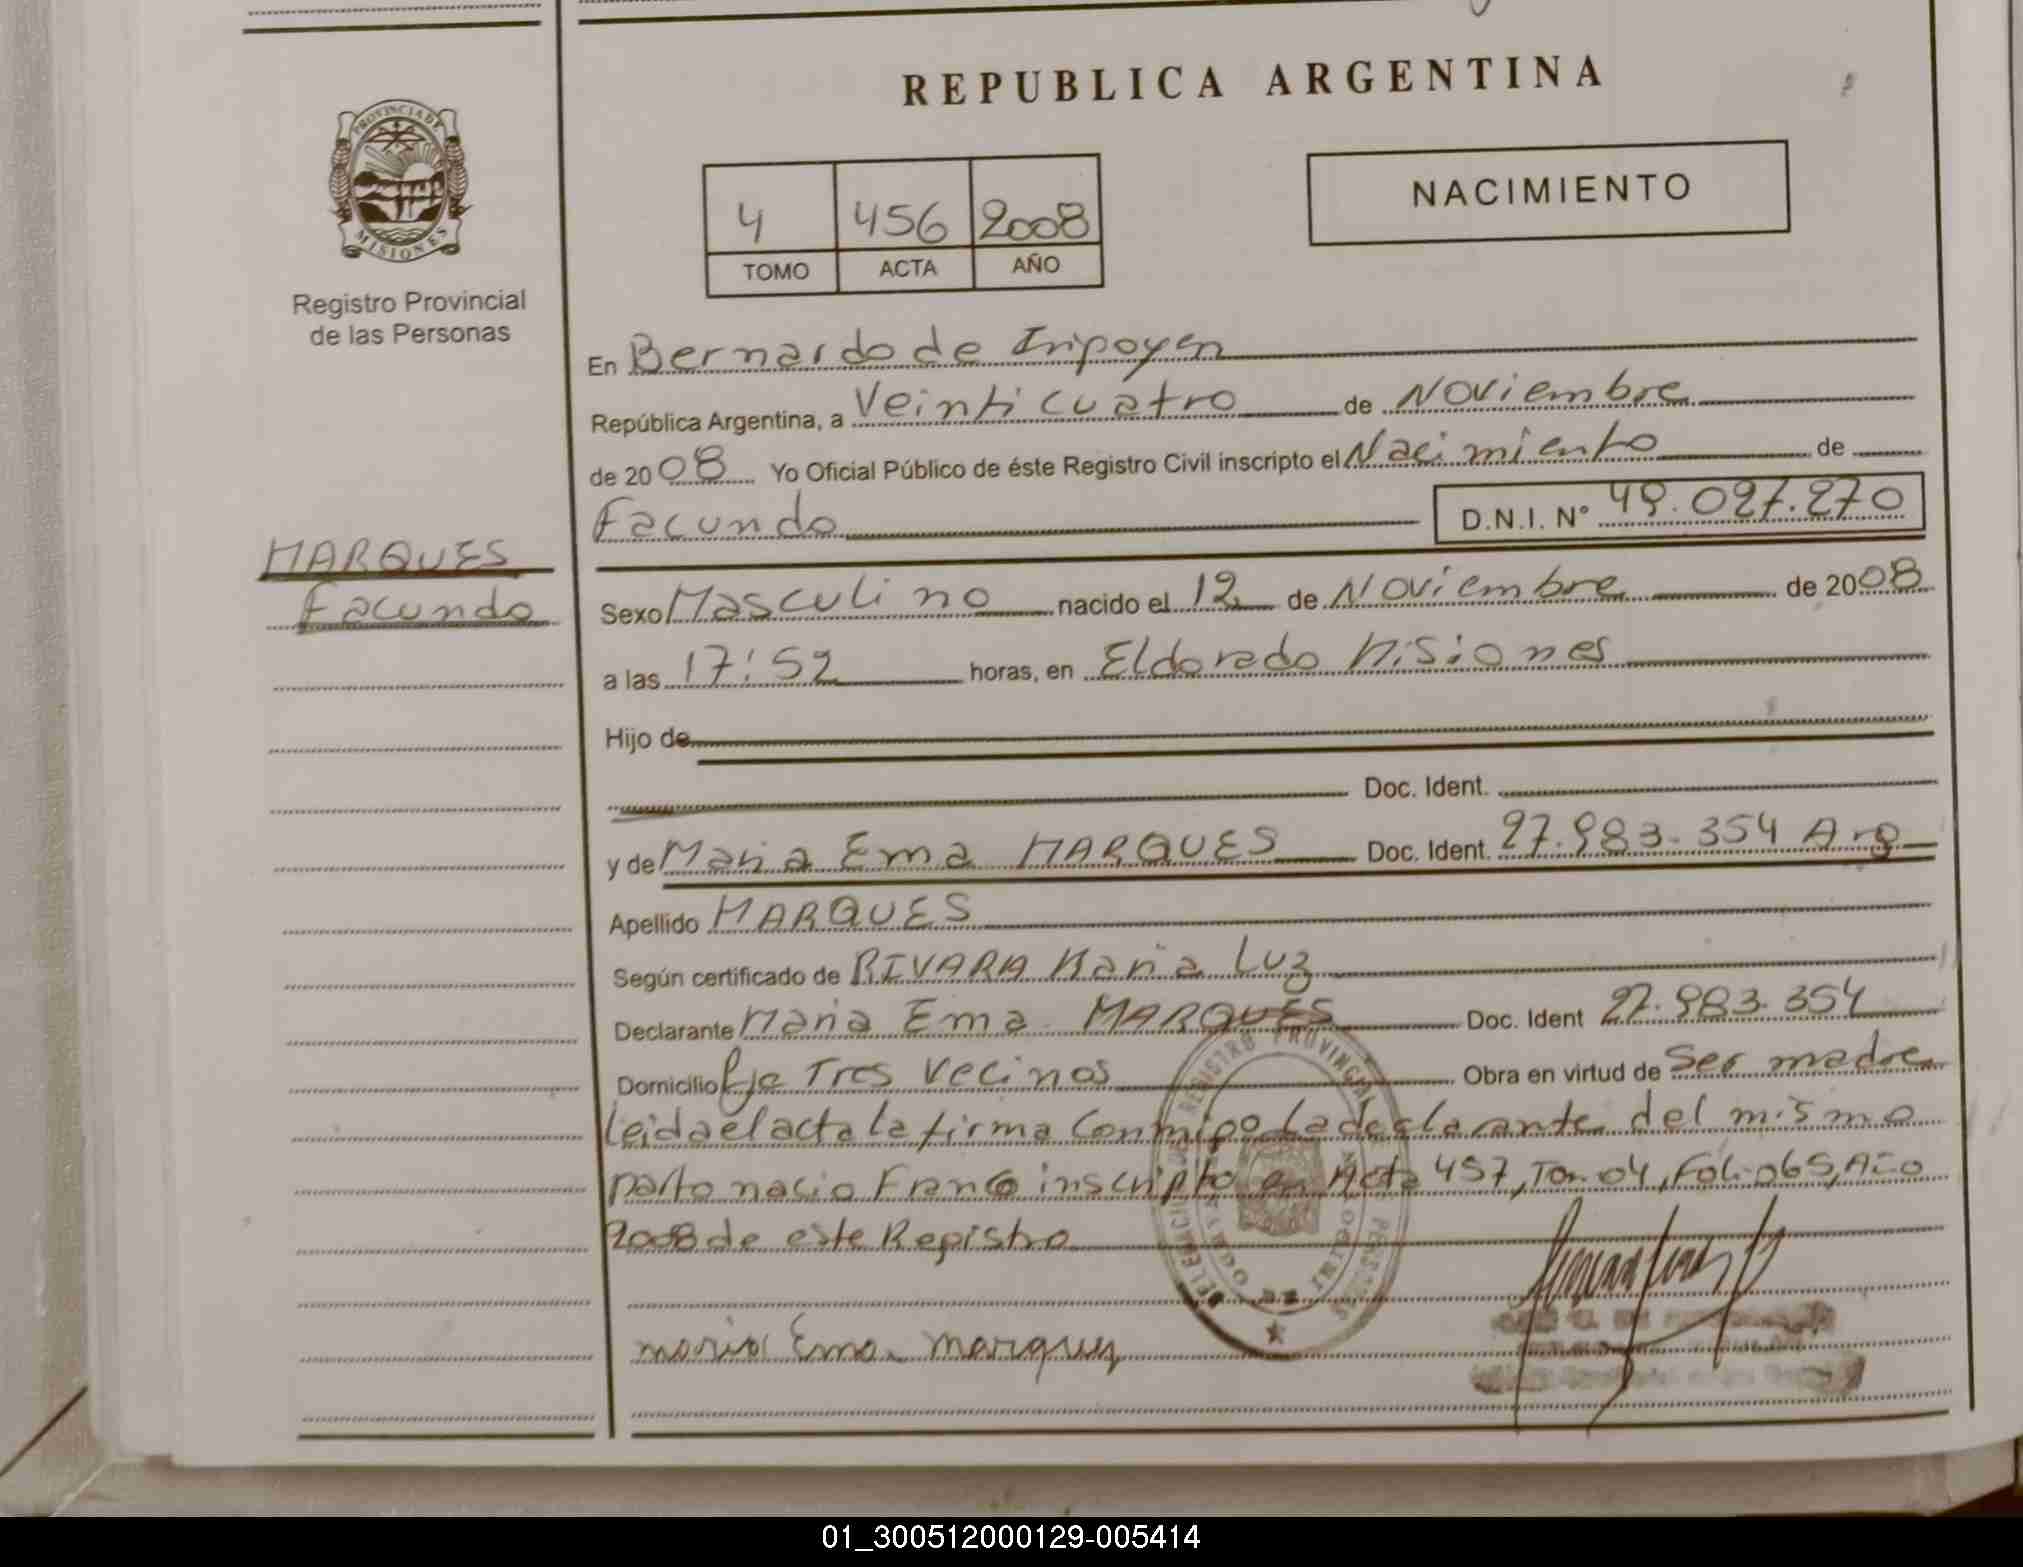 REPUBLICA ARGENTINA
PROVINCIA DE
MISIONES
Registro Provincial
de las Personas
NACIMIENTO
4 456 2008
TOMO ACTA AÑO
En Bernardo de Irigoyen
República Argentina, a Veinticuatro de Noviembre
de 2008 Yo Oficial Público de éste Registro Civil inscripto el Nacimiento de
Facundo D.N.I. N° 49.027.270
MARQUES
Facundo
Sexo Masculino nacido el 12 de Noviembre de 2008
a las 17:52 horas, en Eldorado Misiones
Hijo de
Doc. Ident.
y de Maria Ema MARQUES Doc. Ident. 27.983.354 Arg
Apellido MARQUES
Según certificado de RIVARA Maria Luz
Declarante Maria Ema MARQUES Doc. Ident 27.983.354
Domicilio Pje Tres Vecinos Obra en virtud de Ser madre
Leida el acta la firma Conmigo La declarante del mismo
parto nacio Franco inscripto en Acta 457, Tom 04, Fol. 065, Año
2008 de este Registro
REGISTRO PROVINCIAL
Maria Ema Marques
01_300512000129-005414